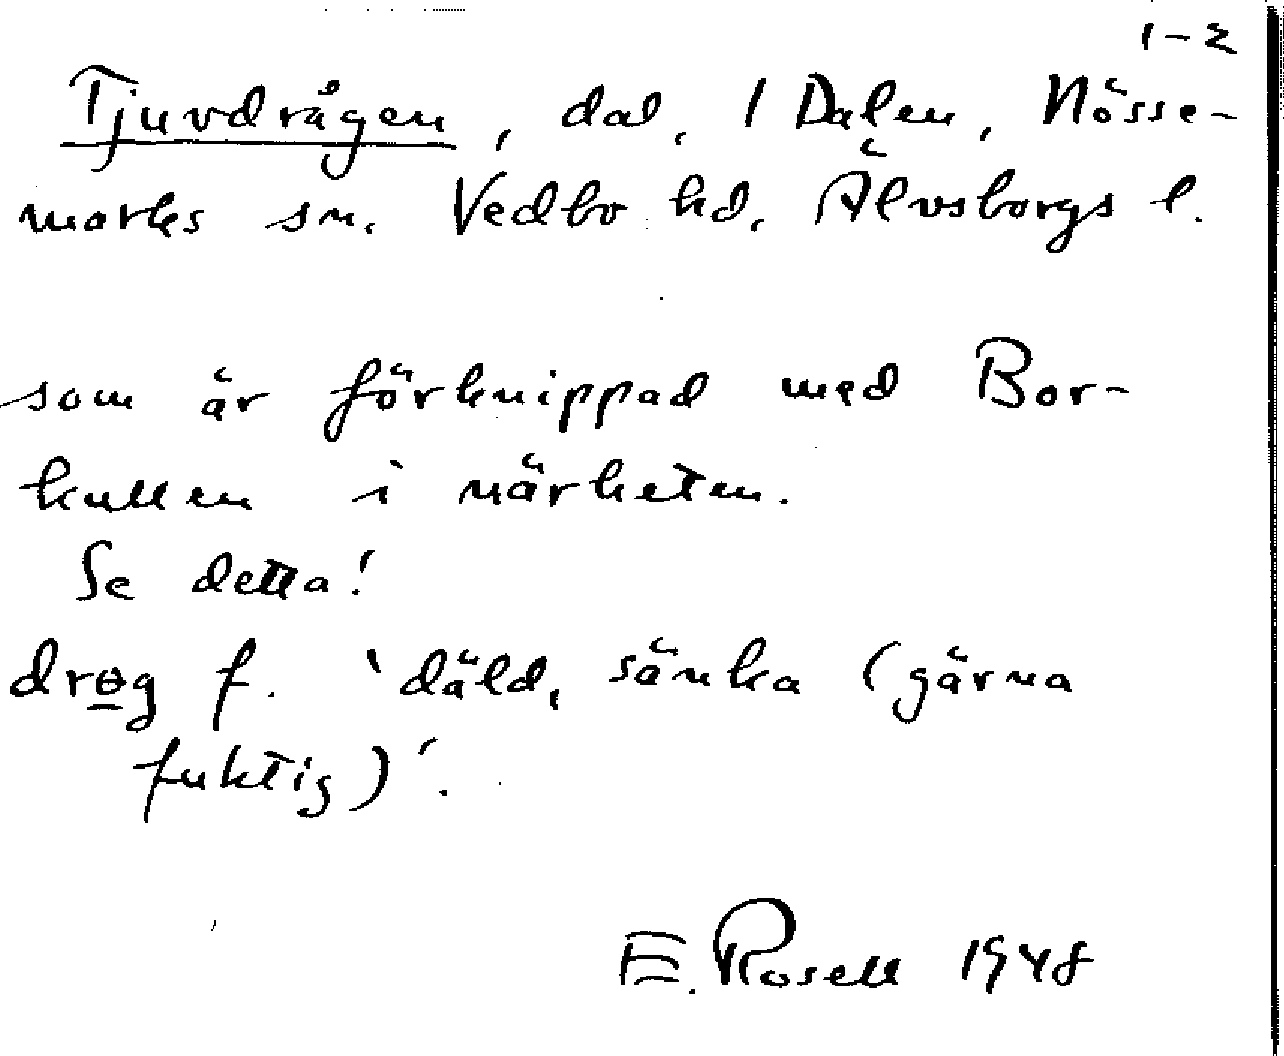 1-2
Tjuvdrågen, dal, 1 Dalen, Nösse-
marks sn. Vedbo hd, Älvsborgs l.
som är förknippad med Bor-
kullen i närheten.
Se detta!
drɵg f. 'däld, sänka (gärna
fuktig)'.
E. Rosell 1948